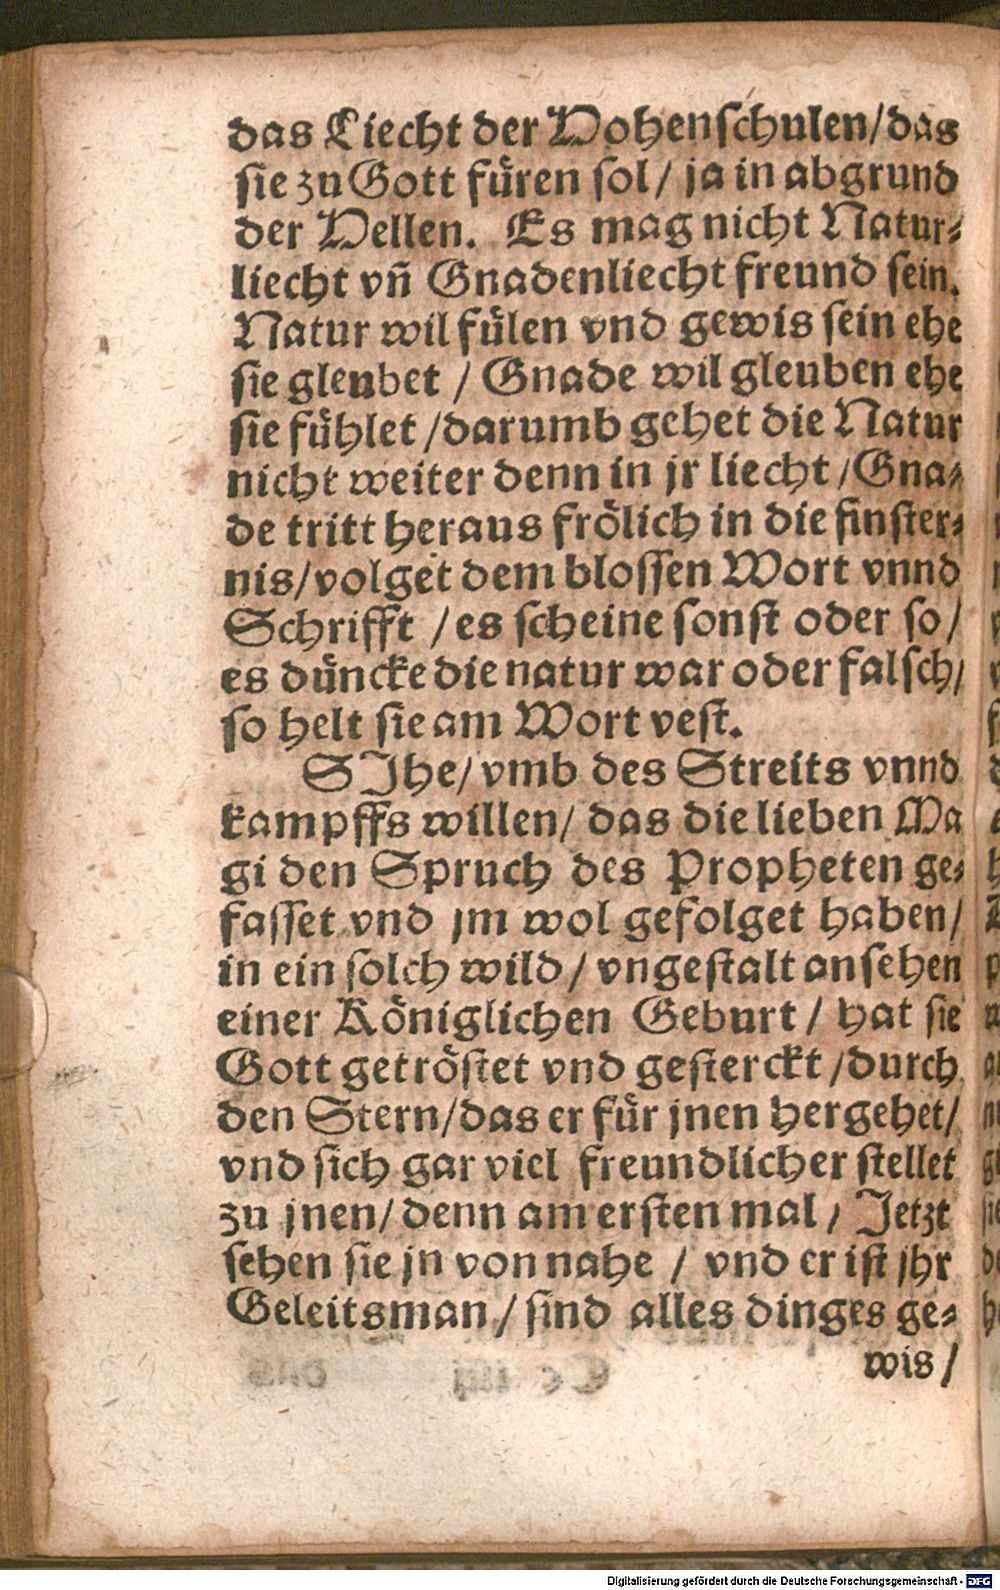 das Liecht der Hohenschulen/das
sie zu Gott füren sol/ ja in abgrund
der Hellen. Es mag nicht Natur⸗
liecht vñ Gnadenliecht freund sein.
Natur wil fülen vnd gewis sein ehe
sie gleubet / Gnade wil gleuben ehe
sie fühlet /darumb gehet die Natur
nicht weiter denn in jr liecht /Gna⸗
de tritt heraus frölich in die finster⸗
nis/volget dem blossen Wort vnnd
Schrifft /es scheine sonst oder so/
es düncke die natur war oder falsch/
so helt sie am Wort vest.
SJhe/ vmb des Streits vnnd
kampffs willen/ das die lieben Ma
gi den Spruch des Propheten ge⸗
fasset vnd jm wol gefolget haben/
in ein solch wild/ vngestalt ansehen
einer Königlichen Geburt / hat sie
Gott getröstet vnd gesterckt /durch
den Stern/das er für jnen hergehet/
vnd sich gar viel freundlicher stellet
zu jnen/ denn am ersten mal / Jetzt
sehen sie jn von nahe / vnd er ist jhr
Geleitsman/ sind alles dinges ge⸗
wis/
Digitalisierung gefördert durch die Deutsche Forschungsgemeinschaft - DFG